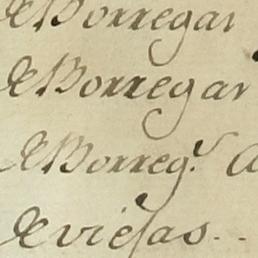 de Borregas
de Borregas
de Borreg.s
de viejas..